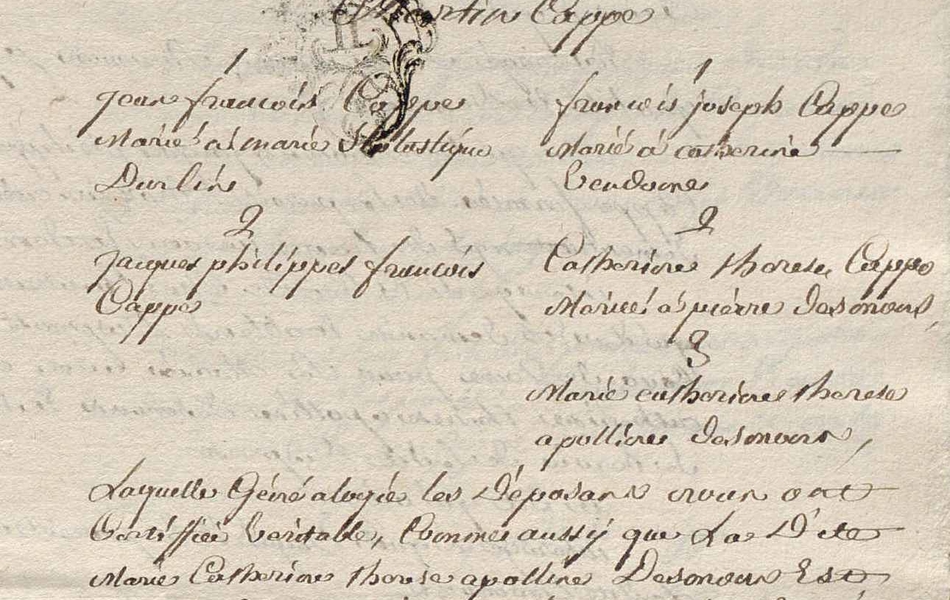 Martin Cappe
1
jean francois Cappe
Marié a marie Scholastique
Durlin
2
jacques philippes francois
Cappe
1
francois joseph Cappe
Marié a catherine
Vendome
2
Catherine therese Cappe
Mariee a pierre
3
Marie catherine therese
apolline
Laquelle Généalogie les Déposans nous ont
Certiffiée Veritable, Comme aussÿ que La Dite
Marie Catherine therese apolline Est